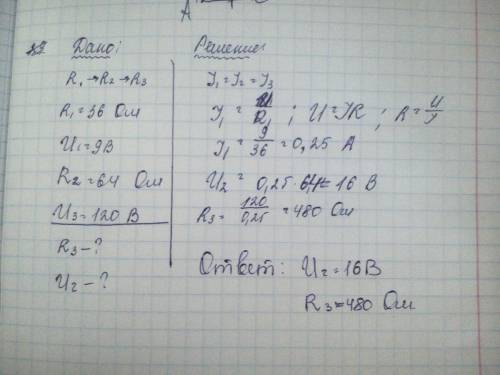 Дано:
R₁→R₂→R₃
R₁=36 Ом
U₁=9В
R₂=64 Ом
U₃=120 В
R₃-?
U₂-?
Решение:
I₁=I₂=I₃
I₁ = U/R₁ ; U=IR ; R=U/I
I₁ = 9/36 = 0,25 А
U₂ = 0,25·64= 16 В
R₃= 120/0,25 =480 Ом
Ответ: U₂=16В
R₃=480 Ом